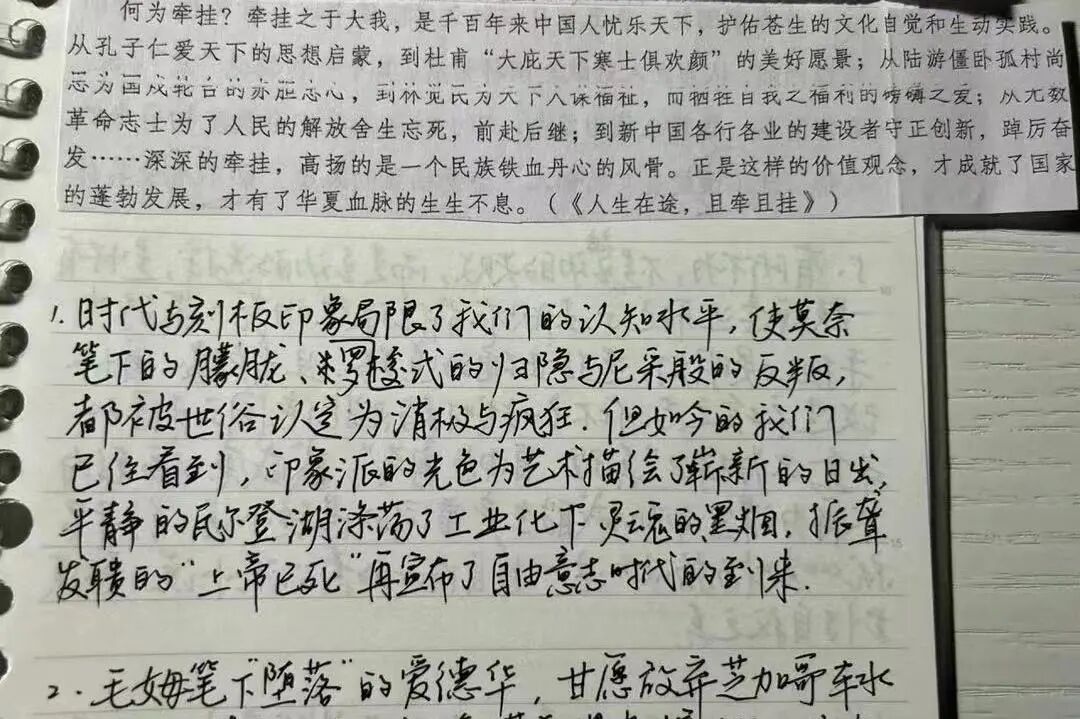 何为牵挂？牵挂之于大我，是千百年来中国人忧乐天下，护佑苍生的文化自觉和生动实践。
从孔子仁爱天下的思想启蒙，到杜甫“大庇天下寒士俱欢颜”的美好愿景；从陆游僵卧孤村尚
思为国戍轮台的赤胆忠心，到林觉民为天下人谋福祉，而牺牲自我之福利的磅礴之爱；从无数
革命志士为了人民的解放舍生忘死，前赴后继；到新中国各行各业的建设者守正创新，踔厉奋
发……深深的牵挂，高扬的是一个民族铁血丹心的风骨。正是这样的价值观念，才成就了国家
的蓬勃发展，才有了华夏血脉的生生不息。（《人生在途，且牵且挂》）
1. 时代与刻板印象局限了我们的认知水平，使莫奈
笔下的朦胧、梭罗式的归隐与尼采般的反叛，
都被世俗认定为消极与疯狂．但如今的我们
已经看到，印象派的光色为艺术描绘了崭新的日出，
平静的瓦尔登湖涤荡了工业化下灵魂的黑烟，振聋
发聩的“上帝已死”再宣布了自由意志时代的到来．
2. 毛姆笔下“堕落”的爱德华，甘愿放弃芝加哥车水